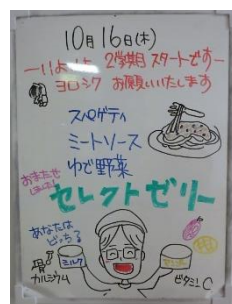 10月16日(木)
ーいよいよ 2学期 スタートですー
ヨロシク お願いいたします
スパゲティ
ミートソース
ゆで野菜
おまたせ
しました
セレクトゼリー
あなたは
どっち?
ミルク
骨
カルシウム
ビタミンC